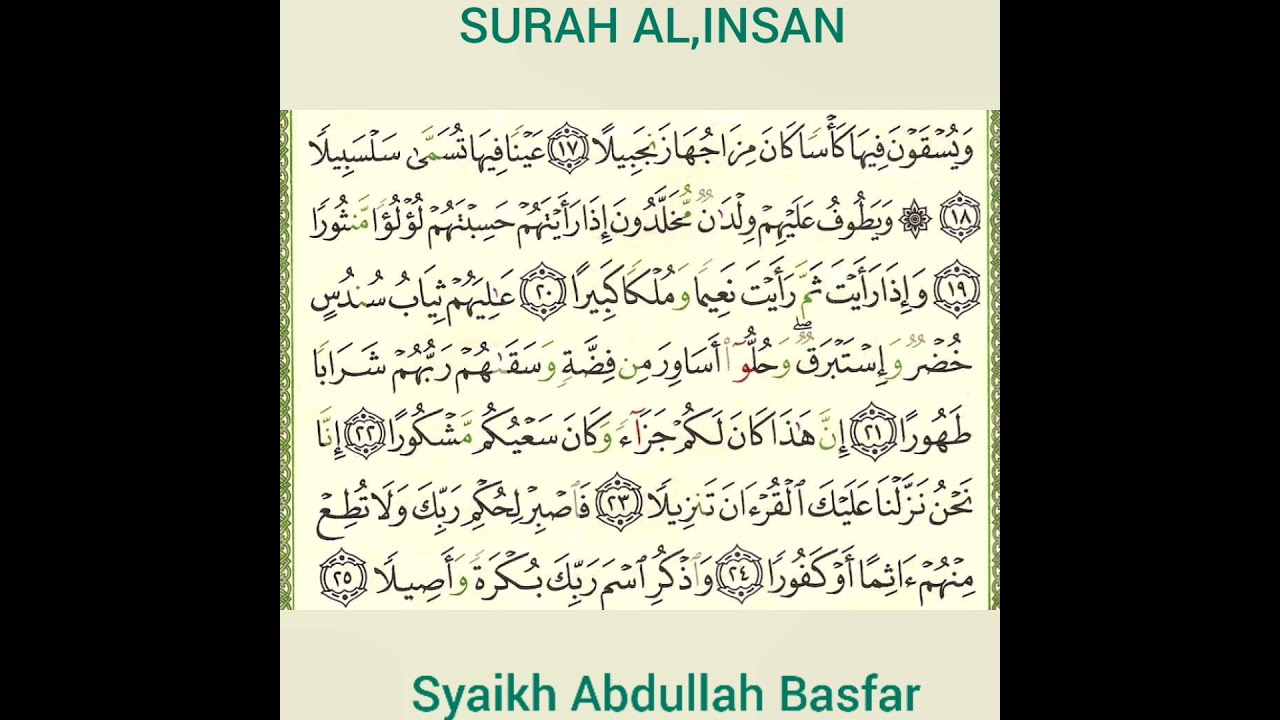 SURAH AL,INSAN
وَيُسْقَوْنَ فِيهَا كَأْسًا كَانَ مِزَاجُهَا زَنجَبِيلًا ١٧ عَيْنًا فِيهَا تُسَمَّىٰ سَلْسَبِيلًا
١٨ ۞ وَيَطُوفُ عَلَيْهِمْ وِلْدَٰنٌ مُّخَلَّدُونَ إِذَا رَأَيْتَهُمْ حَسِبْتَهُمْ لُؤْلُؤًا مَّنثُورًا
١٩ وَإِذَا رَأَيْتَ ثَمَّ رَأَيْتَ نَعِيمًا وَمُلْكًا كَبِيرًا ٢٠ عَٰلِيَهُمْ ثِيَابُ سُندُسٍ
خُضْرٌ وَإِسْتَبْرَقٌ ۖ وَحُلُّوٓا۟ أَسَاوِرَ مِن فِضَّةٍ وَسَقَىٰهُمْ رَبُّهُمْ شَرَابًا
طَهُورًا ٢١ إِنَّ هَٰذَا كَانَ لَكُمْ جَزَآءً وَكَانَ سَعْيُكُم مَّشْكُورًا ٢٢ إِنَّا
نَحْنُ نَزَّلْنَا عَلَيْكَ ٱلْقُرْءَانَ تَنزِيلًا ٢٣ فَٱصْبِرْ لِحُكْمِ رَبِّكَ وَلَا تُطِعْ
مِنْهُمْ ءَاثِمًا أَوْ كَفُورًا ٢٤ وَٱذْكُرِ ٱسْمَ رَبِّكَ بُكْرَةً وَأَصِيلًا ٢٥
Syaikh Abdullah Basfar